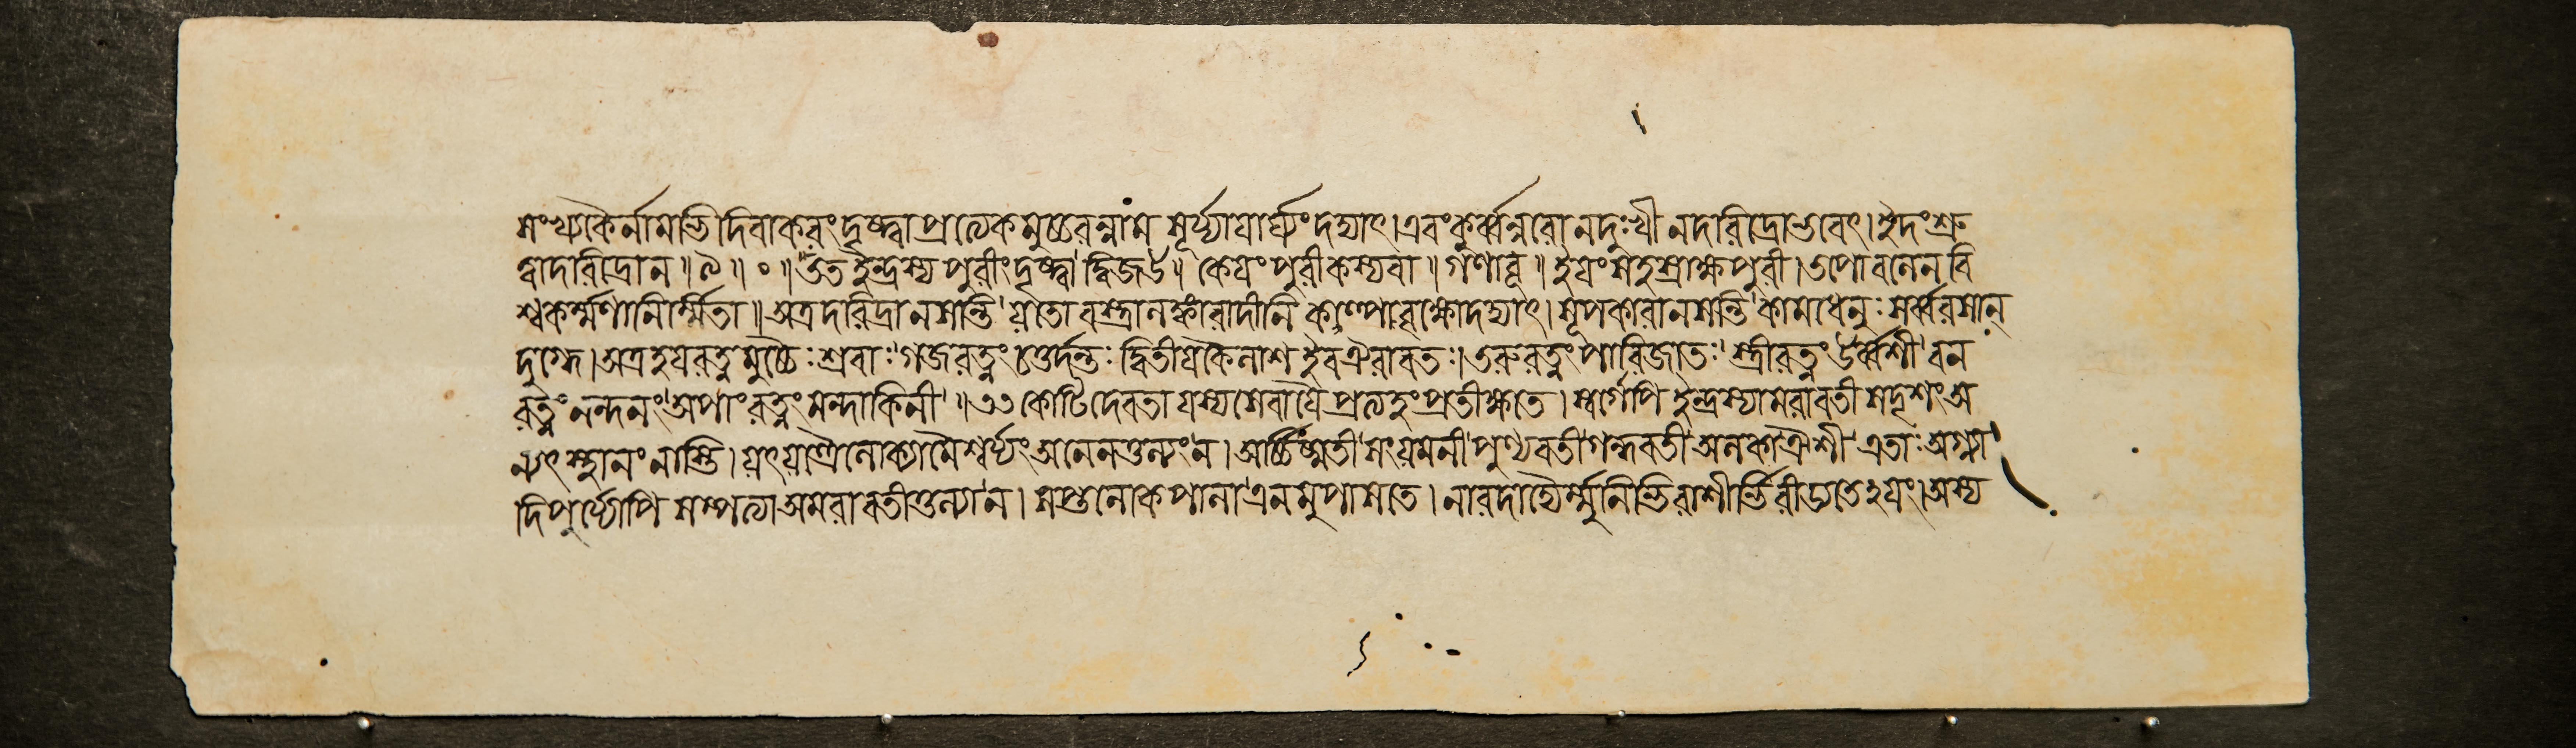 সংখ্যকৈর্নামভি দিবাকরং দৃষ্ট্বা প্রত্যেকমুচ্চরন্নাম সূর্য্যাযার্ঘ্যং দদ্যাৎ। এবং কুর্ব্বন্নরো ন দুঃখী ন দারিদ্রো ভবেৎ। ইদং শ্রু
ত্বা দারিদ্রো ন ॥ ৯ ॥ ০ ॥ তত ইন্দ্রস্য পুরীং দৃষ্ট্বা দ্বিজউ॥ কেযং পুরী কস্য বা ॥ গণাবূ॥ ইযং সহস্রাক্ষপুরী। তপোবলেন বি
শ্বকর্ম্মণা নির্ম্মিতা ॥ অত্র দারিদ্রা ন সন্তি যতো বস্ত্রালঙ্কারাদীনি কল্পবৃক্ষো দদ্যাৎ। সূপকারা ন সন্তি কামধেনুঃ সর্ব্বরসান্
দুগ্ধে। অত্র হযরত্নমুচ্চৈঃশ্রবাঃ গজরত্নং চতুর্দন্তঃ দ্বিতীযকৈলাশ ইব ঐরাবতঃ। তরুরত্নং পারিজাতঃ স্ত্রীরত্নং উর্ব্বশী বন
রত্নং নন্দনং অপাং রত্নং মন্দাকিনী ॥ ৩৩ কোটি দেবতা যস্য সেবাযৈ প্রত্যহং প্রতীক্ষতে। স্বর্গেপি ইন্দ্রস্যামরাবতী সদৃশং অ
ন্যৎ স্থানং নাস্তি। যৎ যৎ ত্রৈলোক্যামৈশ্বর্য্যং অনেন তুল্যং ন। অর্চ্চিষ্মতী সংযমনী পুণ্যবতী গন্ধবতী অলকা ঐশী এতাঃ অগ্ন্যা
দিপুর্য্যোপি সম্পত্যা অমরাবতীতুল্যা ন। সপ্তলোকপালা এনমুপাসতে। নারদাদ্যৈর্ম্মুনিভিরাশীর্ভিরীড্যতেঽযং। অস্য